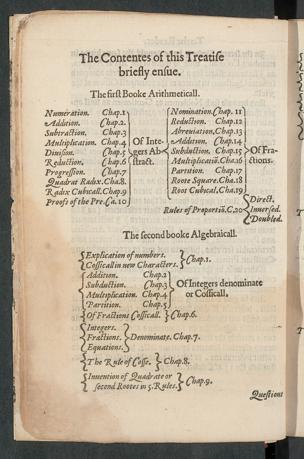 The Contentes of this Treatise
briefly ensue.
The first Booke Arithmeticall.
Numeration. Chap.1
Addition. Chap.2
Subtraction. Chap.3
Multiplication. Chap.4
Division. Chap.5
Reduction. Chap.6
Progression. Chap.7
Quadrat Radix. Cha.8
Radix Cubicall. Chap.9
Proofs of the Pre. Ca. 10
Of Inte-
gers Ab
stract.
Nomination. Chap. 11
Reduction. Chap.12
Abreuiation. Chap.13
Addition. Chap.14
Subduction. Chap.15
Multiplicatiō. Cha.16
Partition. Chap.17
Roote Square. Cha.18
Root Cubicall, Cha.19
Of Fra-
ctions.
Rules of Proportiō. C.20
Direct.
Inuersed.
Doubled.
The second booke Algebraicall.
Explication of numbers.
Cossicall in new Characters.
Chap.1.
Addition. Chap.2
Subduction. Chap.3
Multiplication. Chap.4
Partition. Chap.5
Of Integers denominate
or Cossicall,
Of Fractions Cossicall. Chap.6.
Integers.
Fractions.
Equations.
Denominate. Chap.7.
The Rule of Cosse. Chap.8.
Inuention of Quadrate or
second Rootes in 5. Rules.
Chap.9.
Questions